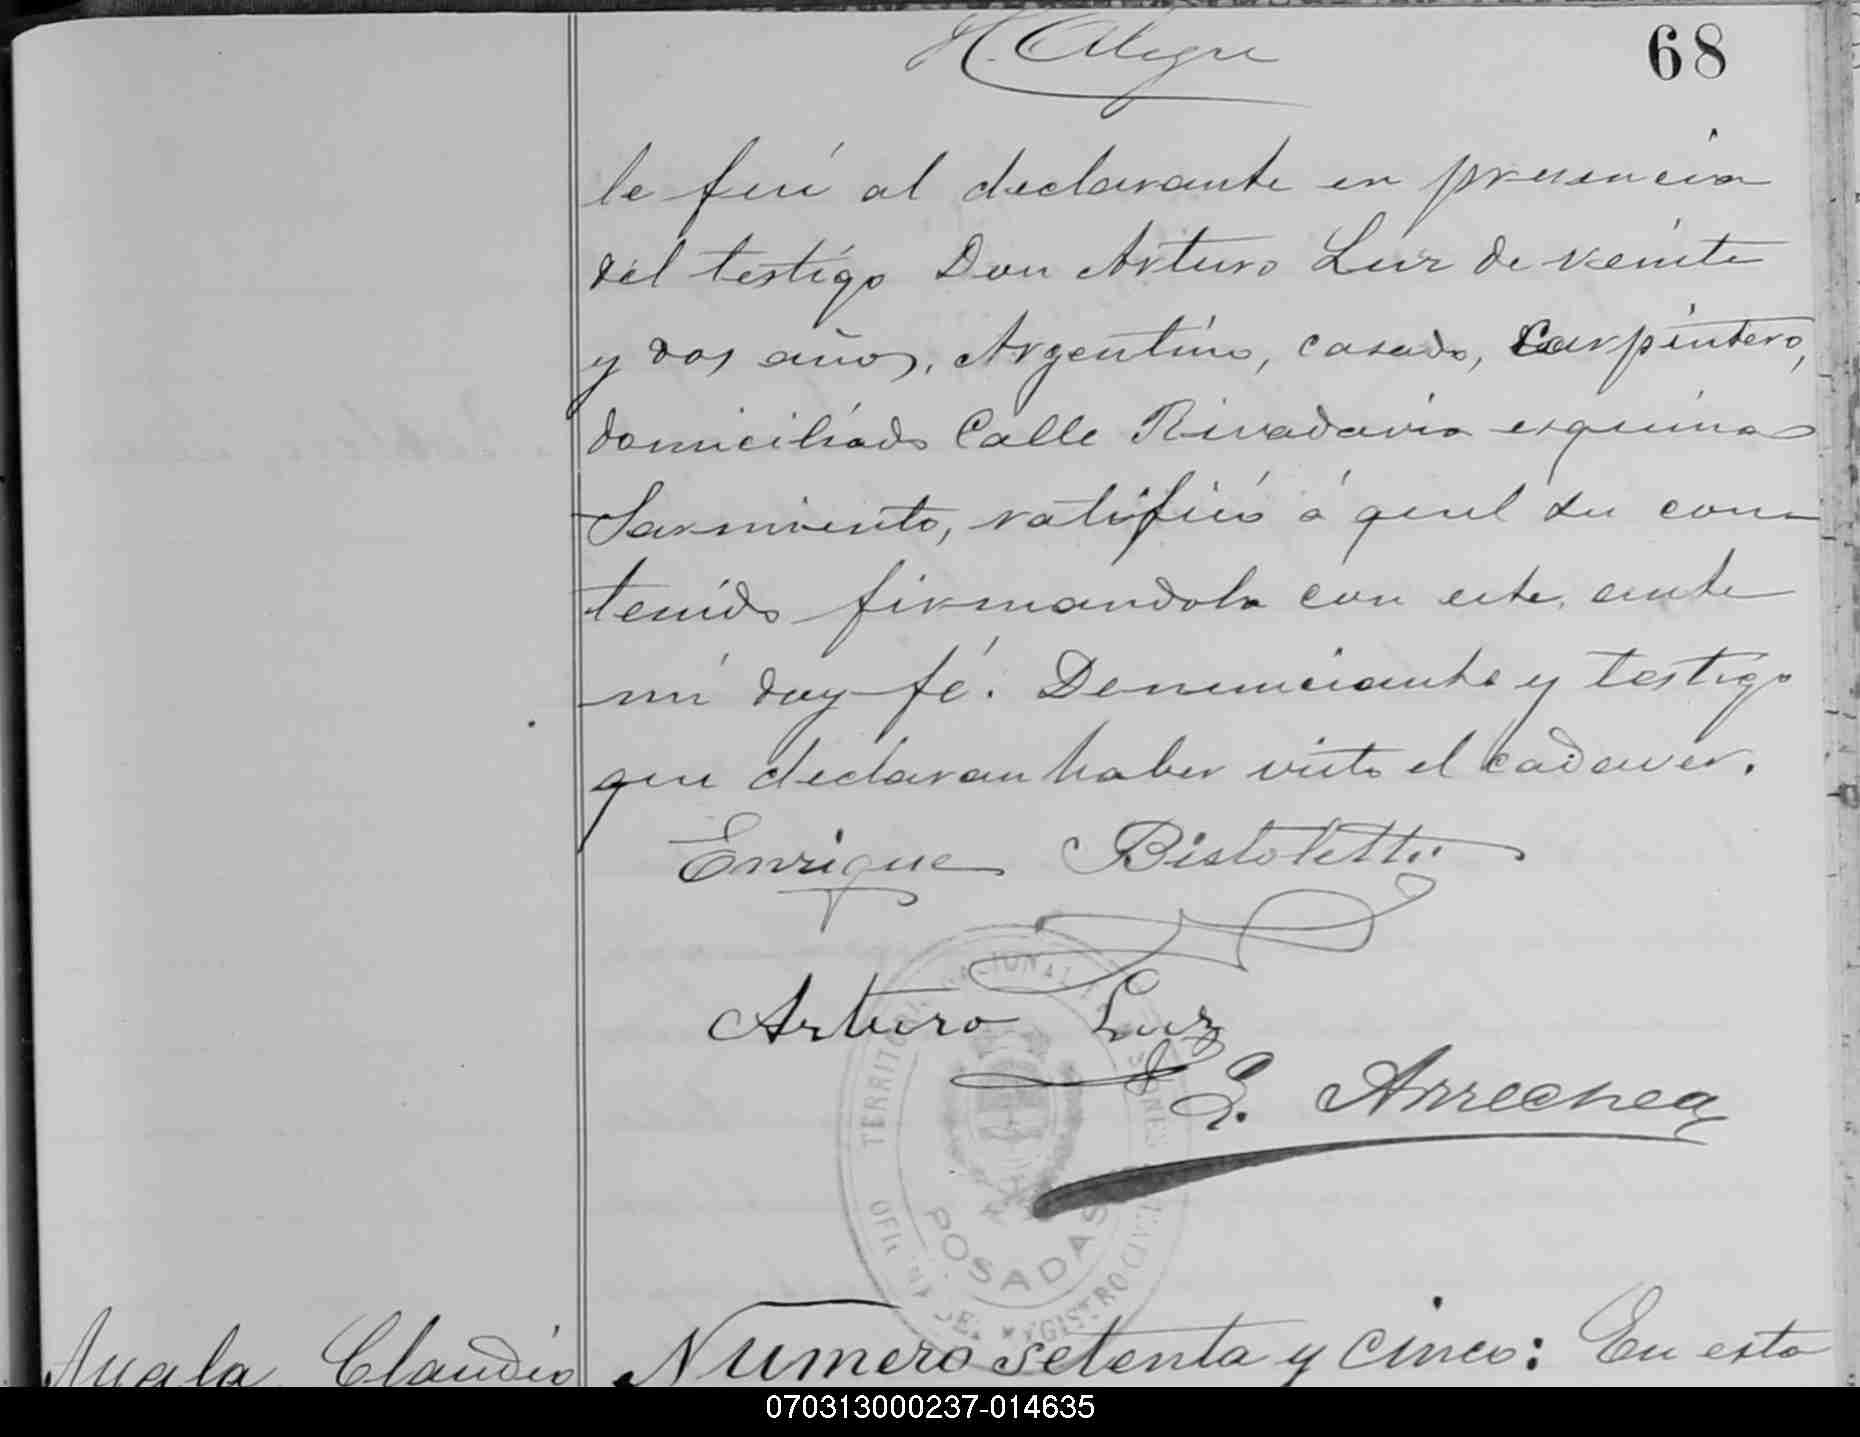 H. Alegre
68
le fui al declarante en presencia
del testigo Don Arturo Luz de veinte
y dos años, Argentino, casado, Carpintero,
domiciliado Calle Rivadavia esquina
Sarmiento, ratificó á quel su con-
tenido firmandola con este, ante
mi doy fé. Denunciante y testigo
que declaran haber visto el cadaver.
Enrique Bistoletti
Arturo Luz
E. Arrechea
TERRITORIO NACIONAL MISIONES
OFICINA DEL REGISTRO CIVIL
POSADAS
Ayala Claudio
Numero setenta y cinco: En esta
070313000237-014635